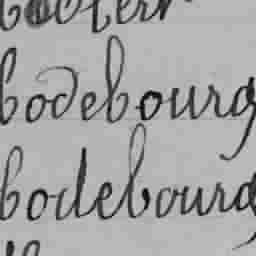 bodebourg
bodebourg